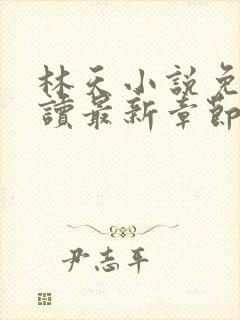 林天小說免
讀最新章節
尹志平